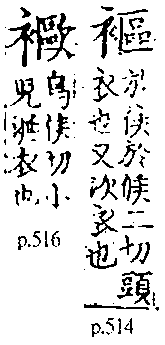 褔
於侯於候二切頭
衣也又次衣也
p.514
𧝪
烏侯切小
兒涎衣也
p.516